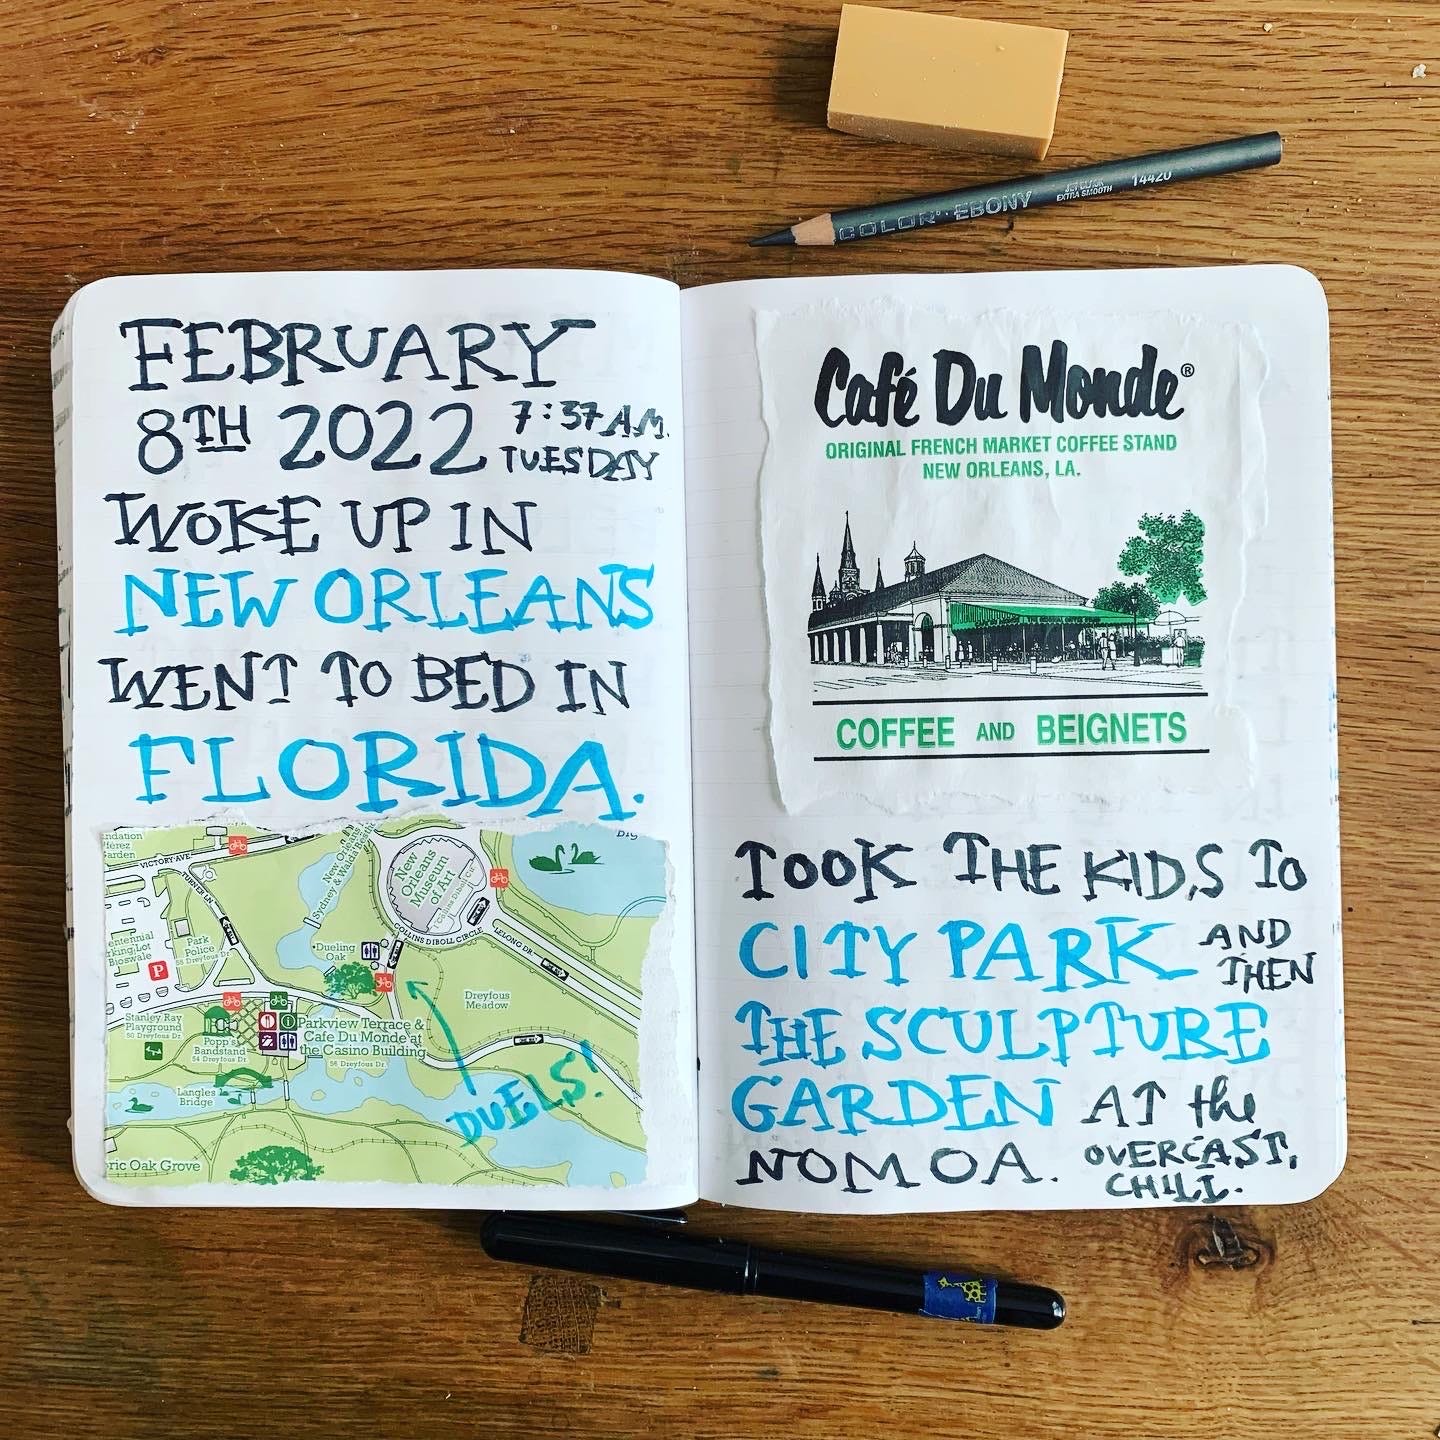 COLOR EBONY
JET BLACK
EXTRA SMOOTH
14420
FEBRUARY
8TH 2022 7:37 A.M.
TUESDAY
WOKE UP IN
NEW ORLEANS
WENT TO BED IN
FLORIDA.
VICTORY AVE
Park
Police
55 Dreyfous Dr.
P
Stanley Ray
Playground
50 Dreyfous Dr.
Popp's
Bandstand
54 Dreyfous Dr.
Langles
Bridge
Oak Grove
New Orleans
Sydney & Walda
New
Orleans
Museum
of Art
1 Collins Diboll Cir.
COLLINS DIBOLL CIRCLE
LELONG DR
Big
Dueling
Oak
Dreyfous
Meadow
Parkview Terrace &
Cafe Du Monde at
the Casino Building
56 Dreyfous Dr.
ONE WAY
DUELS!
Café Du Monde®
ORIGINAL FRENCH MARKET COFFEE STAND
NEW ORLEANS, LA.
COFFEE AND BEIGNETS
TOOK THE KIDS TO
CITY PARK AND
THEN
THE SCULPTURE
GARDEN AT the
NOMOA. OVERCAST,
CHILL.